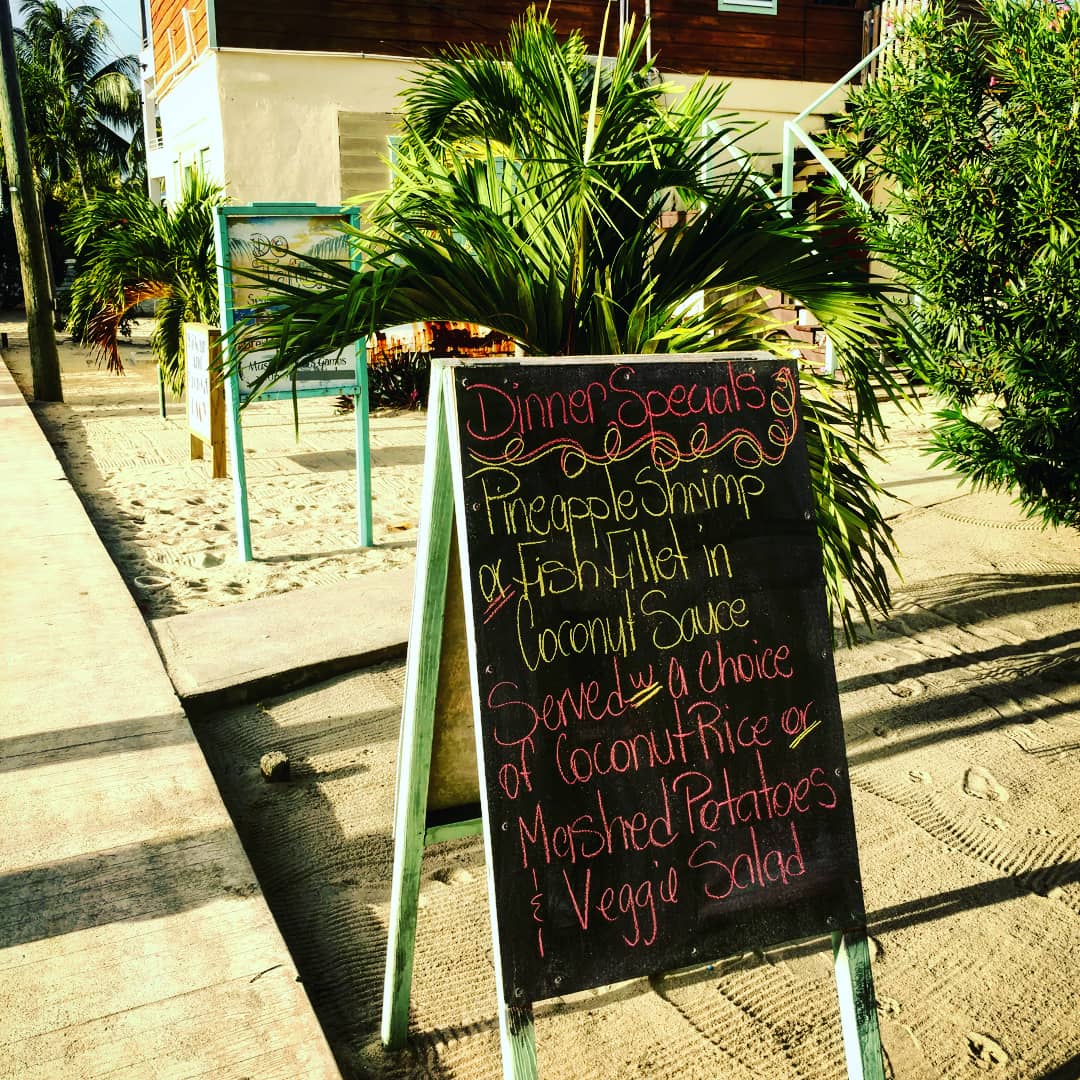 Dinner Specials
Pineapple Shrimp
or Fish Fillet in
Coconut Sauce
Served w a choice
of Coconut Rice or
Mashed Potatoes
& Veggie Salad
DO